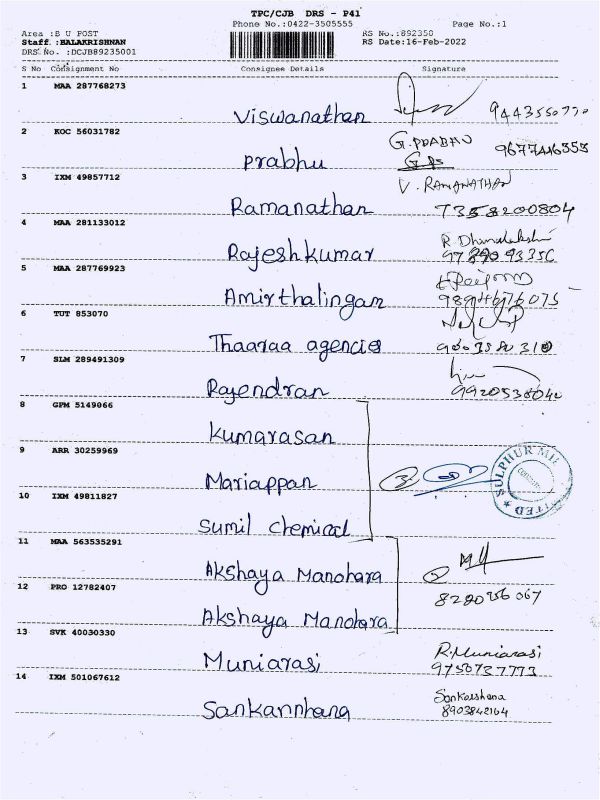 TPC/CJB DRS - P41
Phone No.:0422-3505555 Page No.:1
Area :B U POST RS No.:892350
Staff :BALAKRISHNAN RS Date:16-Feb-2022
DRS No. :DCJB89235001
S No Consignment No Consignee Details Signature
1 MAA 287768273
Viswanathan 9443550770
2 KOC 56031782 G. PRABHU
Prabhu
3 IXM 49857712 V. RAMANATHAN
Ramanathan 7358200804
4 MAA 281133012
Rajeshkumar
5 MAA 287769923
Amirthalingam
6 TUT 853070
Thaaraa agencies
7 SLM 289491309
Rajendran 9920538040
8 GPM 5149066
Kumarasan
9 ARR 30259969
Mariappan
10 IXM 49811827 SULPHUR MI
Sumil Chemical
11 MAA 563535291
Akshaya Manohara
12 PRO 12782407
Akshaya Manohara
13 SVK 40030330 R. Muniarasi
Muniarasi 9750737773
14 IXM 501067612 Sankarshana
Sankarshana 8903842164